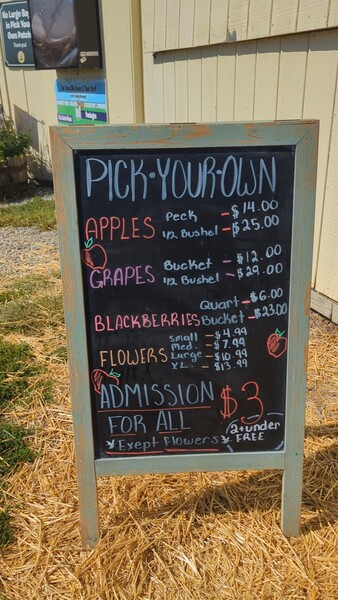 No Large Bags
in Pick Your
Own Patch
Thank you!
PICK·YOUR·OWN
APPLES Peck - $14.00
1/2 Bushel - $25.00
GRAPES Bucket - $12.00
1/2 Bushel - $29.00
BLACKBERRIES Quart - $6.00
Bucket - $23.00
FLOWERS Small - $4.99
Med. - $7.99
Large - $10.99
XL - $13.99
ADMISSION $3
FOR ALL 2+under
*Exept Flowers* FREE